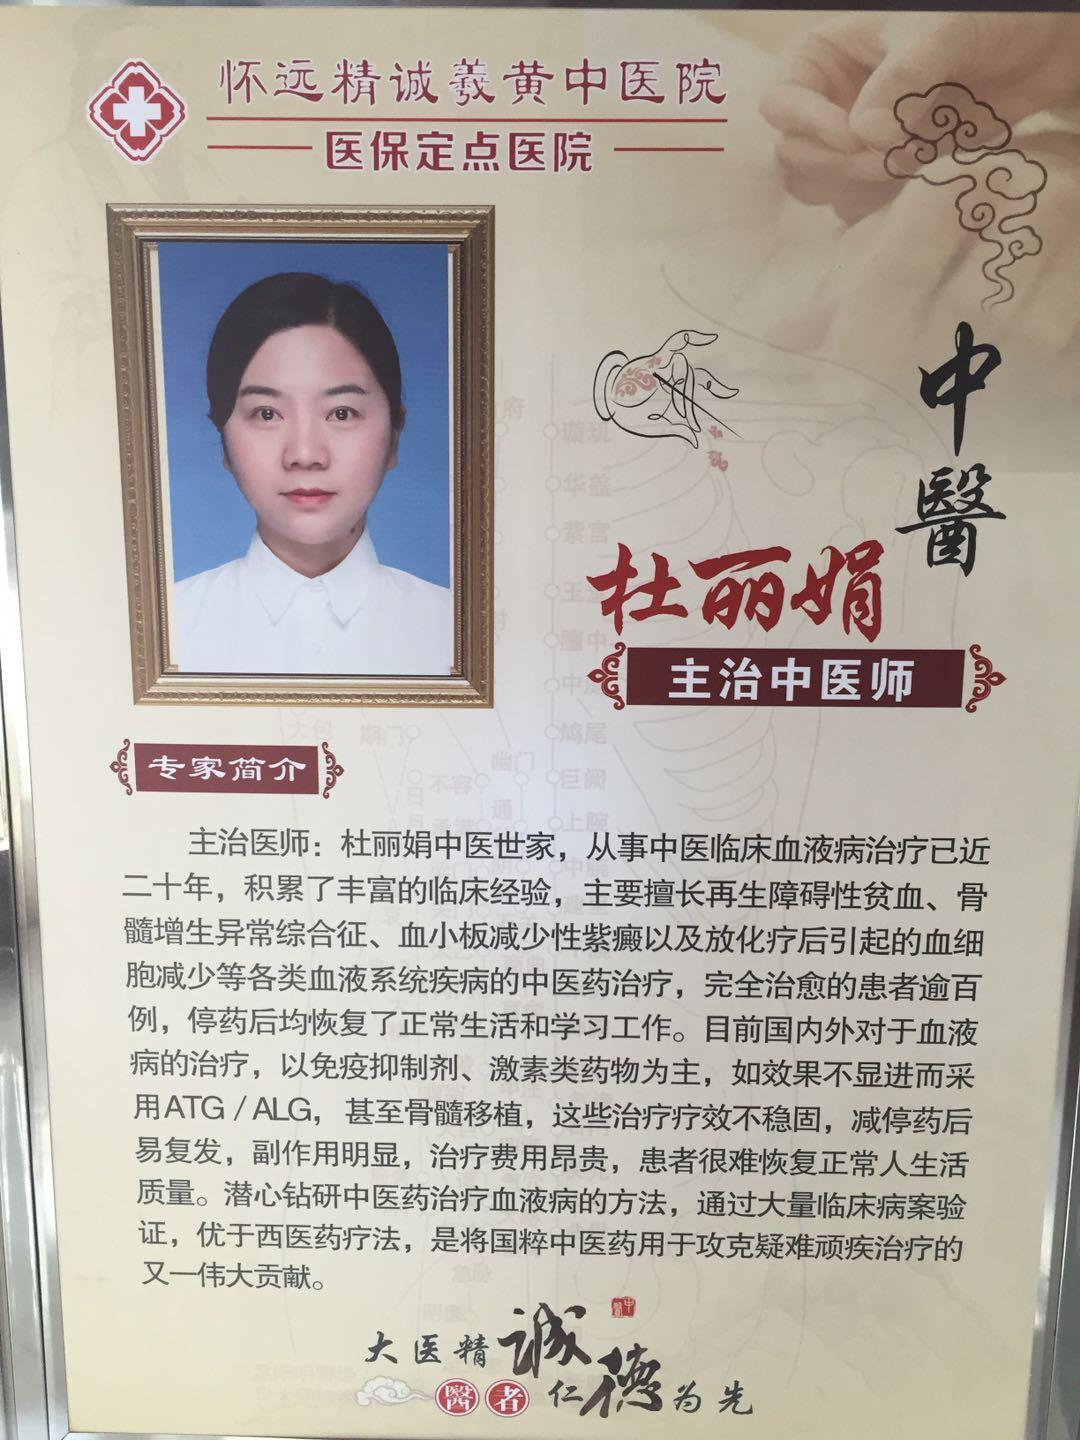 怀远精诚羲黄中医院
医保定点医院
中醫
杜丽娟
主治中医师
璇玑
华盖
紫宫
膻中
鸠尾
期门
幽门
不容
巨阙
上脘
专家简介
主治医师：杜丽娟中医世家，从事中医临床血液病治疗已近
二十年，积累了丰富的临床经验，主要擅长再生障碍性贫血、骨
髓增生异常综合征、血小板减少性紫癜以及放化疗后引起的血细
胞减少等各类血液系统疾病的中医药治疗，完全治愈的患者逾百
例，停药后均恢复了正常生活和学习工作。目前国内外对于血液
病的治疗，以免疫抑制剂、激素类药物为主，如效果不显进而采
用ATG/ALG，甚至骨髓移植，这些治疗疗效不稳固，减停药后
易复发，副作用明显，治疗费用昂贵，患者很难恢复正常人生活
质量。潜心钻研中医药治疗血液病的方法，通过大量临床病案验
证，优于西医药疗法，是将国粹中医药用于攻克疑难顽疾治疗的
又一伟大贡献。
大医精誠
醫者仁德为先